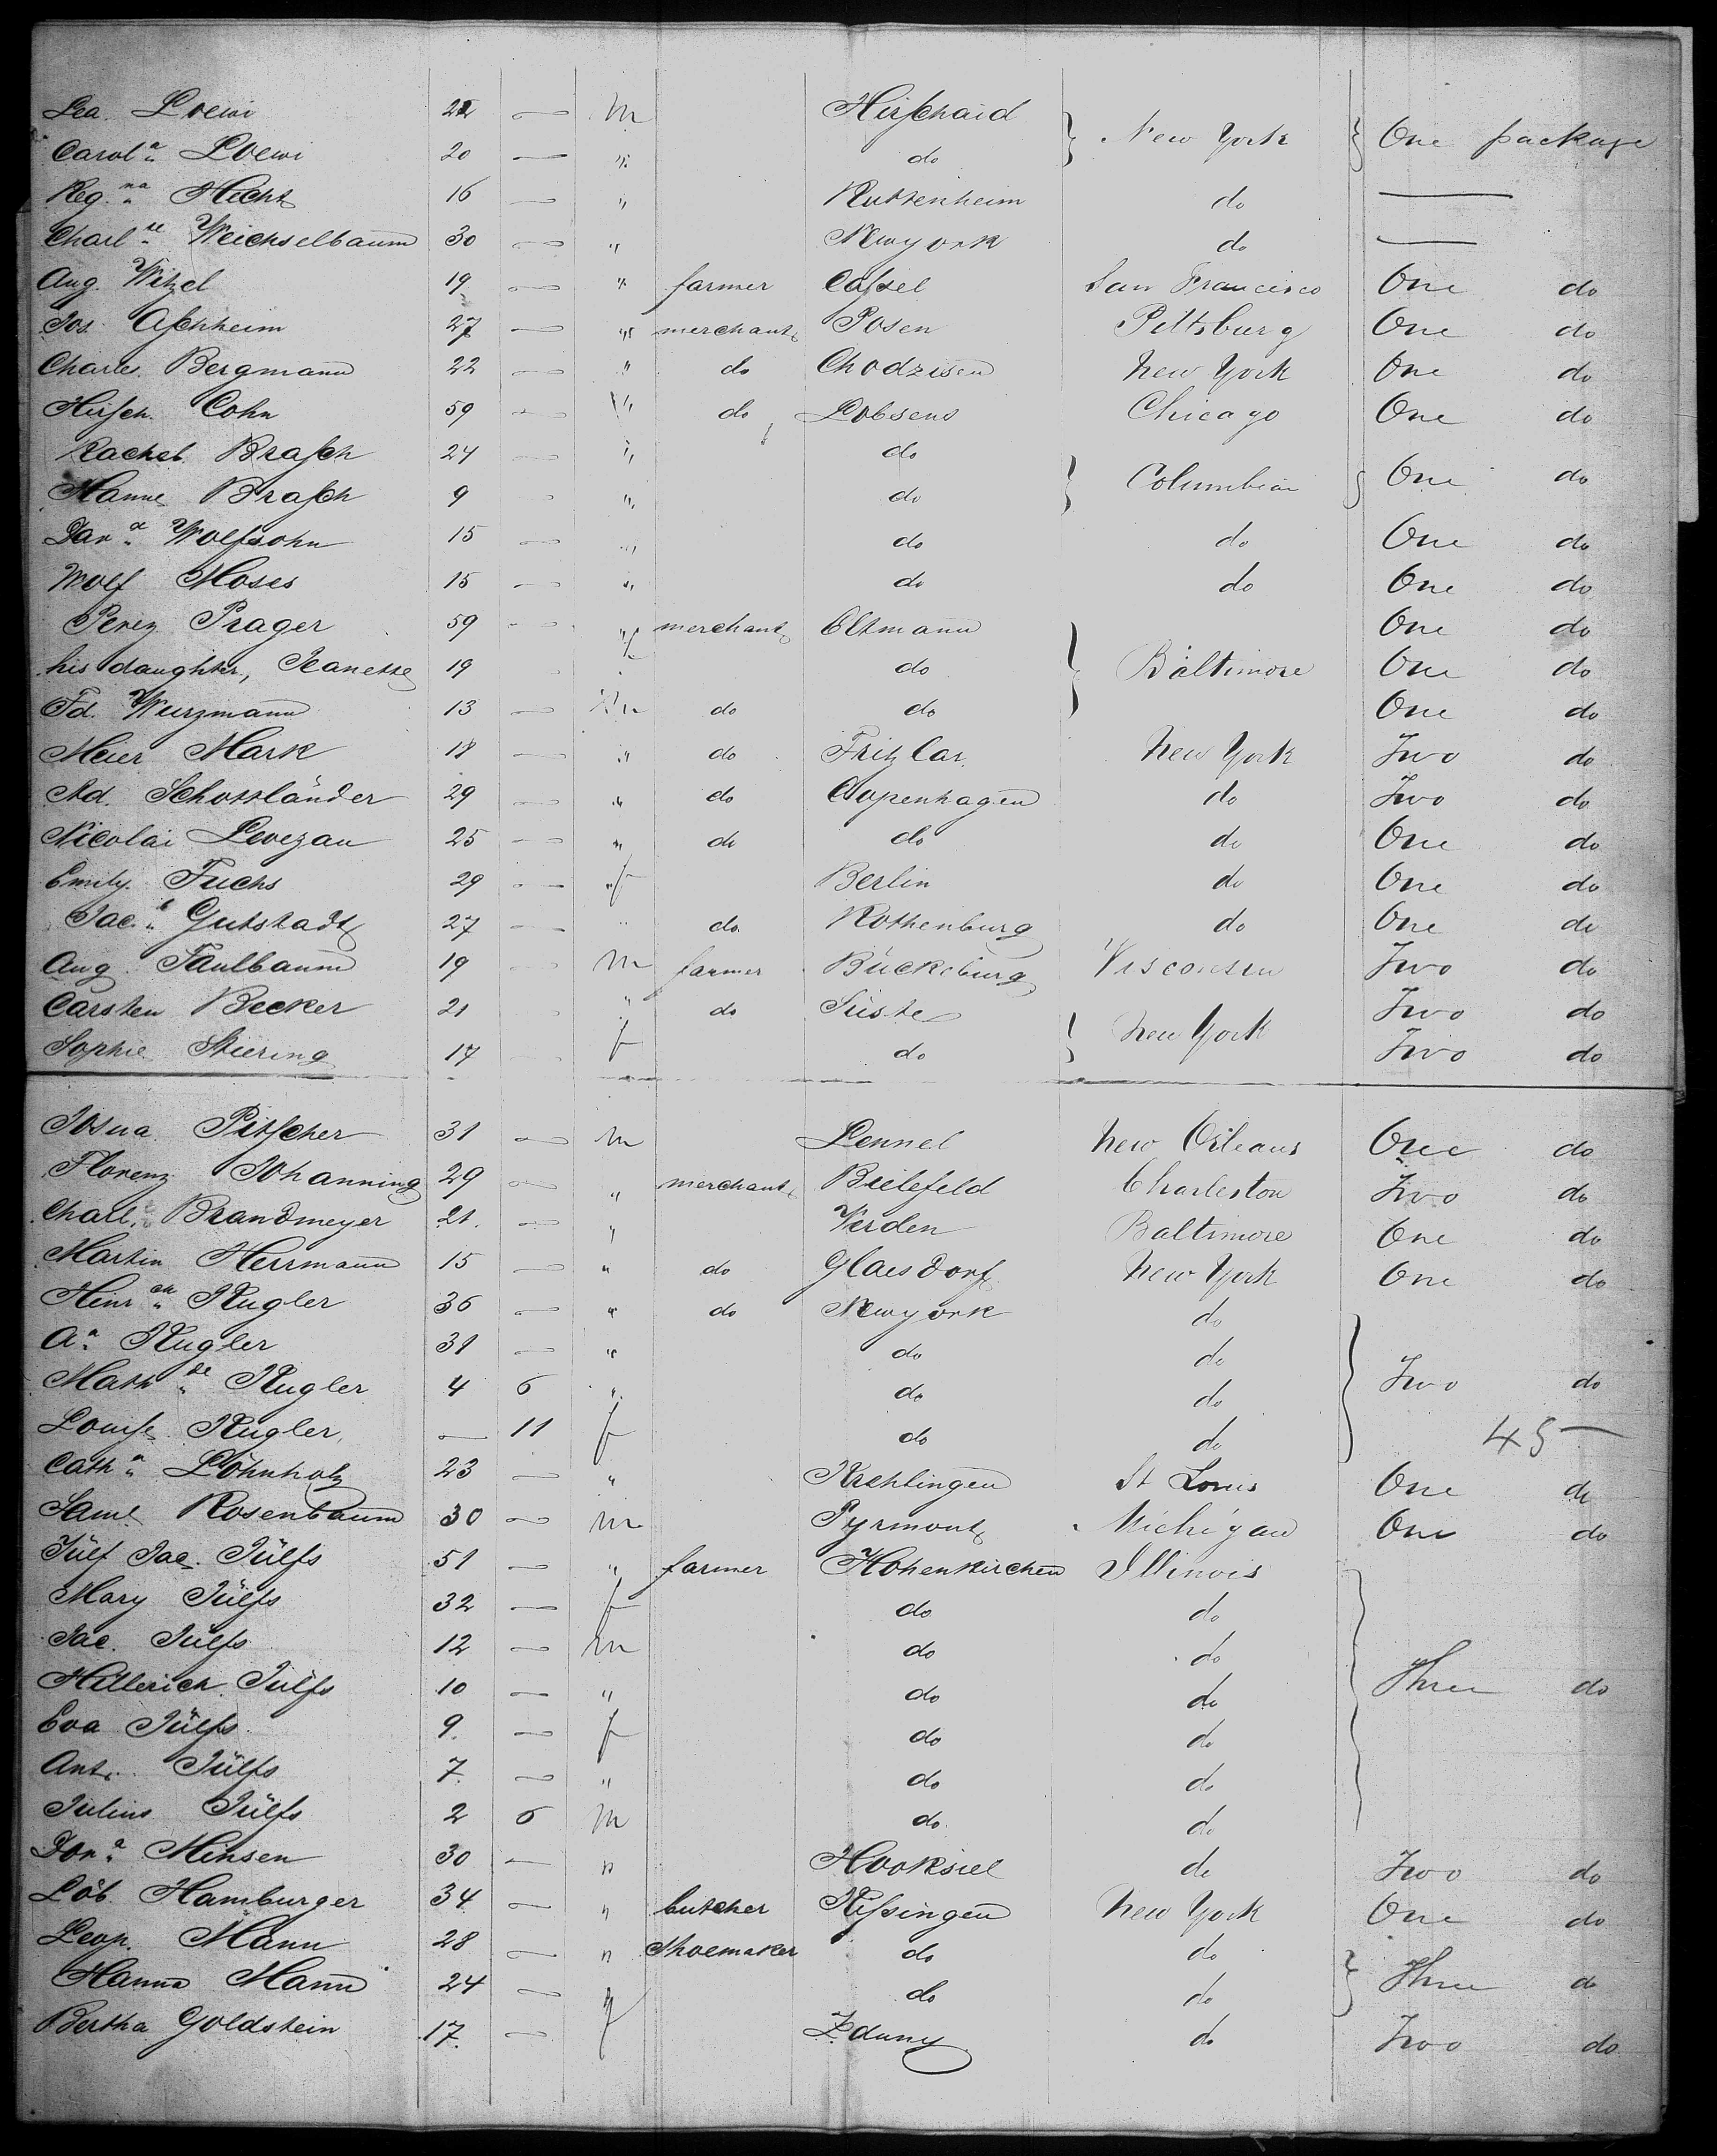 Lea Loewi 22 — m Hirschaid } New York } One package
Carol.a Loewi 20 — " do
Reg.na Hecht 16 — " Buttenheim do —
Charl.te Weichselbaum 30 — " Newyork do —
Aug. Witzel 19 — " farmer Cassel San Francisco One do
Jos. Aschheim 27 — " merchant Posen Pittsburg One do
Charles Bergmann 22 — " do Chodzisen New York One do
Hirsch Cohn 59 — " do Lobsens Chicago One do
Rachel Brasch 24 — " do } Columbia } One do
Hanne Brasch 9 — " do
Dav.d Wolfsohn 15 — " do do One do
Wolf Moses 15 — " do do One do
Perez Prager 59 — " merchant Eltmann } Baltimore One do
his daughter, Jeanette 19 f do One do
Fd. Wurzmann 13 — m do do One do
Meier Mark 18 — " do Fritzlar New York Two do
Ad. Schottländer 29 — " do Copenhagen do Two do
Nicolai Levezau 25 — " do do do One do
Emily Fuchs 29 — f Berlin do One do
Jac.b Gutstadt 27 — " do Rothenburg do One do
Aug. Faulbaum 19 — m farmer Bückeburg Visconsin Two do
Carsten Becker 21 " do Süste } New York Two do
Sophie Stiering 17 f do Two do
Josua Pitscher 31 — m Lennel New Orleans One do
Florenz Johanning 29 — " merchant Bielefeld Charleston Two do
Charl. Brandmeyer 21 — " Verden Baltimore One do
Martin Herrmann 15 — " do Glaesdorf New York One do
Heinr.ch Kugler 36 — " do Newyork do } Two do
A.a Kugler 31 — " do do
Math.de Kugler 4 6 " do do
Louise Kugler — 11 f do do
45 —
Cath.a Löhnholz 23 — " Kechtingen St Louis One do
Saml. Rosenbaum 30 — m Pyrmont Michigan One do
Jülf Jac. Jülfs 51 — " farmer Hohenkirchen Illinois } Three do
Mary Jülfs 32 — f do do
Jac. Jülfs 12 — m do do
Hillerich Jülfs 10 — " do do
Eva Jülfs 9 — f do do
Ant. Jülfs 7 — " do do
Julius Jülfs 2 6 m do do
Joh.a Minsen 30 — " Hooksiel do Two do
Löb Hamburger 34 — " butcher Kissingen New York One do
Leop. Mann 28 — " Shoemaker do do } Three do
Hanna Mann 24 — f do do
Bertha Goldstein 17 — Zduny do Two do